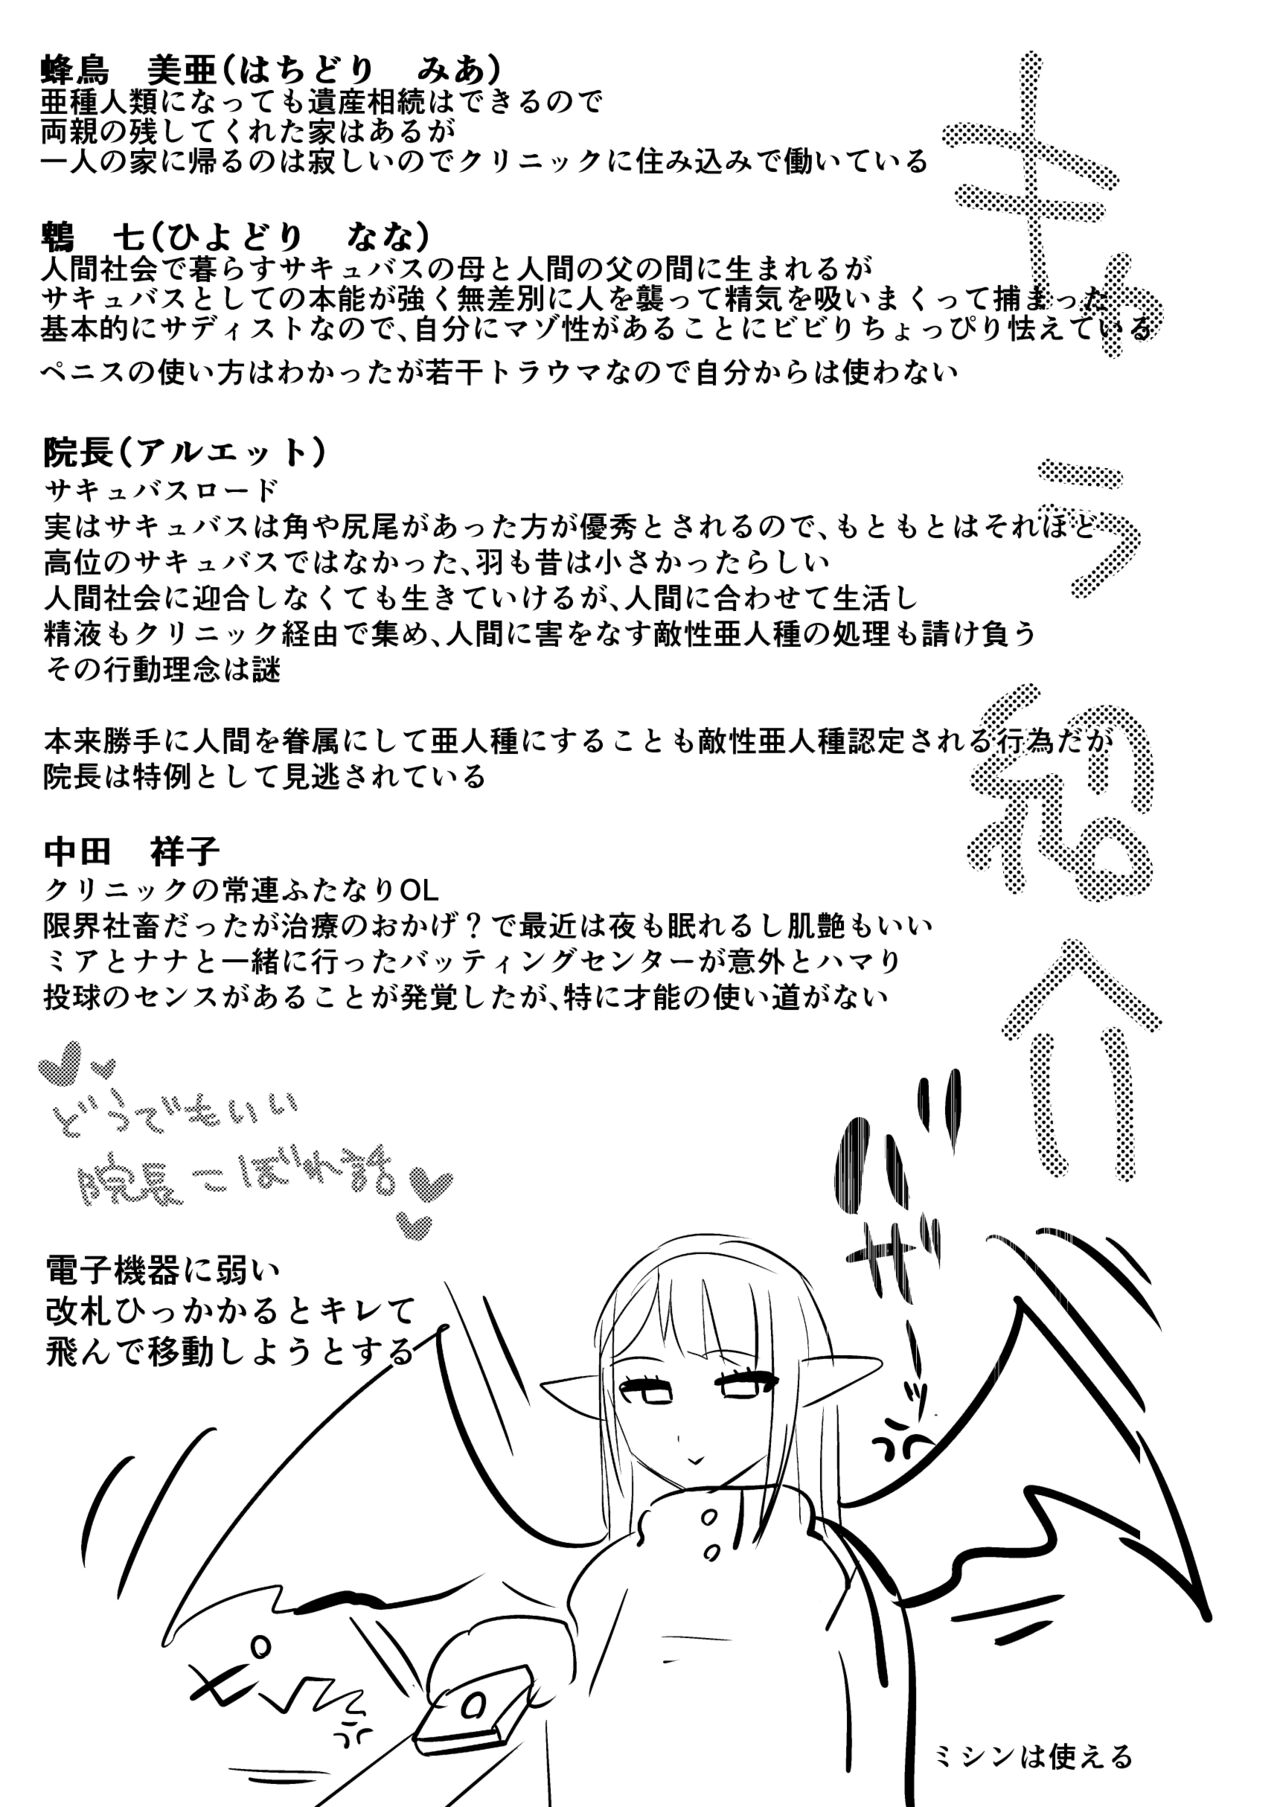 キャラ紹介
蜂鳥　美亜(はちどり　みあ)
亜種人類になっても遺産相続はできるので
両親の残してくれた家はあるが
一人の家に帰るのは寂しいのでクリニックに住み込みで働いている
鵯　七(ひよどり　なな)
人間社会で暮らすサキュバスの母と人間の父の間に生まれるが
サキュバスとしての本能が強く無差別に人を襲って精気を吸いまくって捕まった
基本的にサディストなので、自分にマゾ性があることにビビりちょっぴり怯えている
ペニスの使い方はわかったが若干トラウマなので自分からは使わない
院長(アルエット)
サキュバスロード
実はサキュバスは角や尻尾があった方が優秀とされるので、もともとはそれほど
高位のサキュバスではなかった、羽も昔は小さかったらしい
人間社会に迎合しなくても生きていけるが、人間に合わせて生活し
精液もクリニック経由で集め、人間に害をなす敵性亜人種の処理も請け負う
その行動理念は謎
本来勝手に人間を眷属にして亜人種にすることも敵性亜人種認定される行為だが
院長は特例として見逃されている
中田　祥子
クリニックの常連ふたなりOL
限界社畜だったが治療のおかげ？で最近は夜も眠れるし肌艶もいい
ミアとナナと一緒に行ったバッティングセンターが意外とハマり
投球のセンスがあることが発覚したが、特に才能の使い道がない
どうでもいい
院長こぼれ話
電子機器に弱い
改札ひっかかるとキレて
飛んで移動しようとする
バザーッ
ミシンは使える